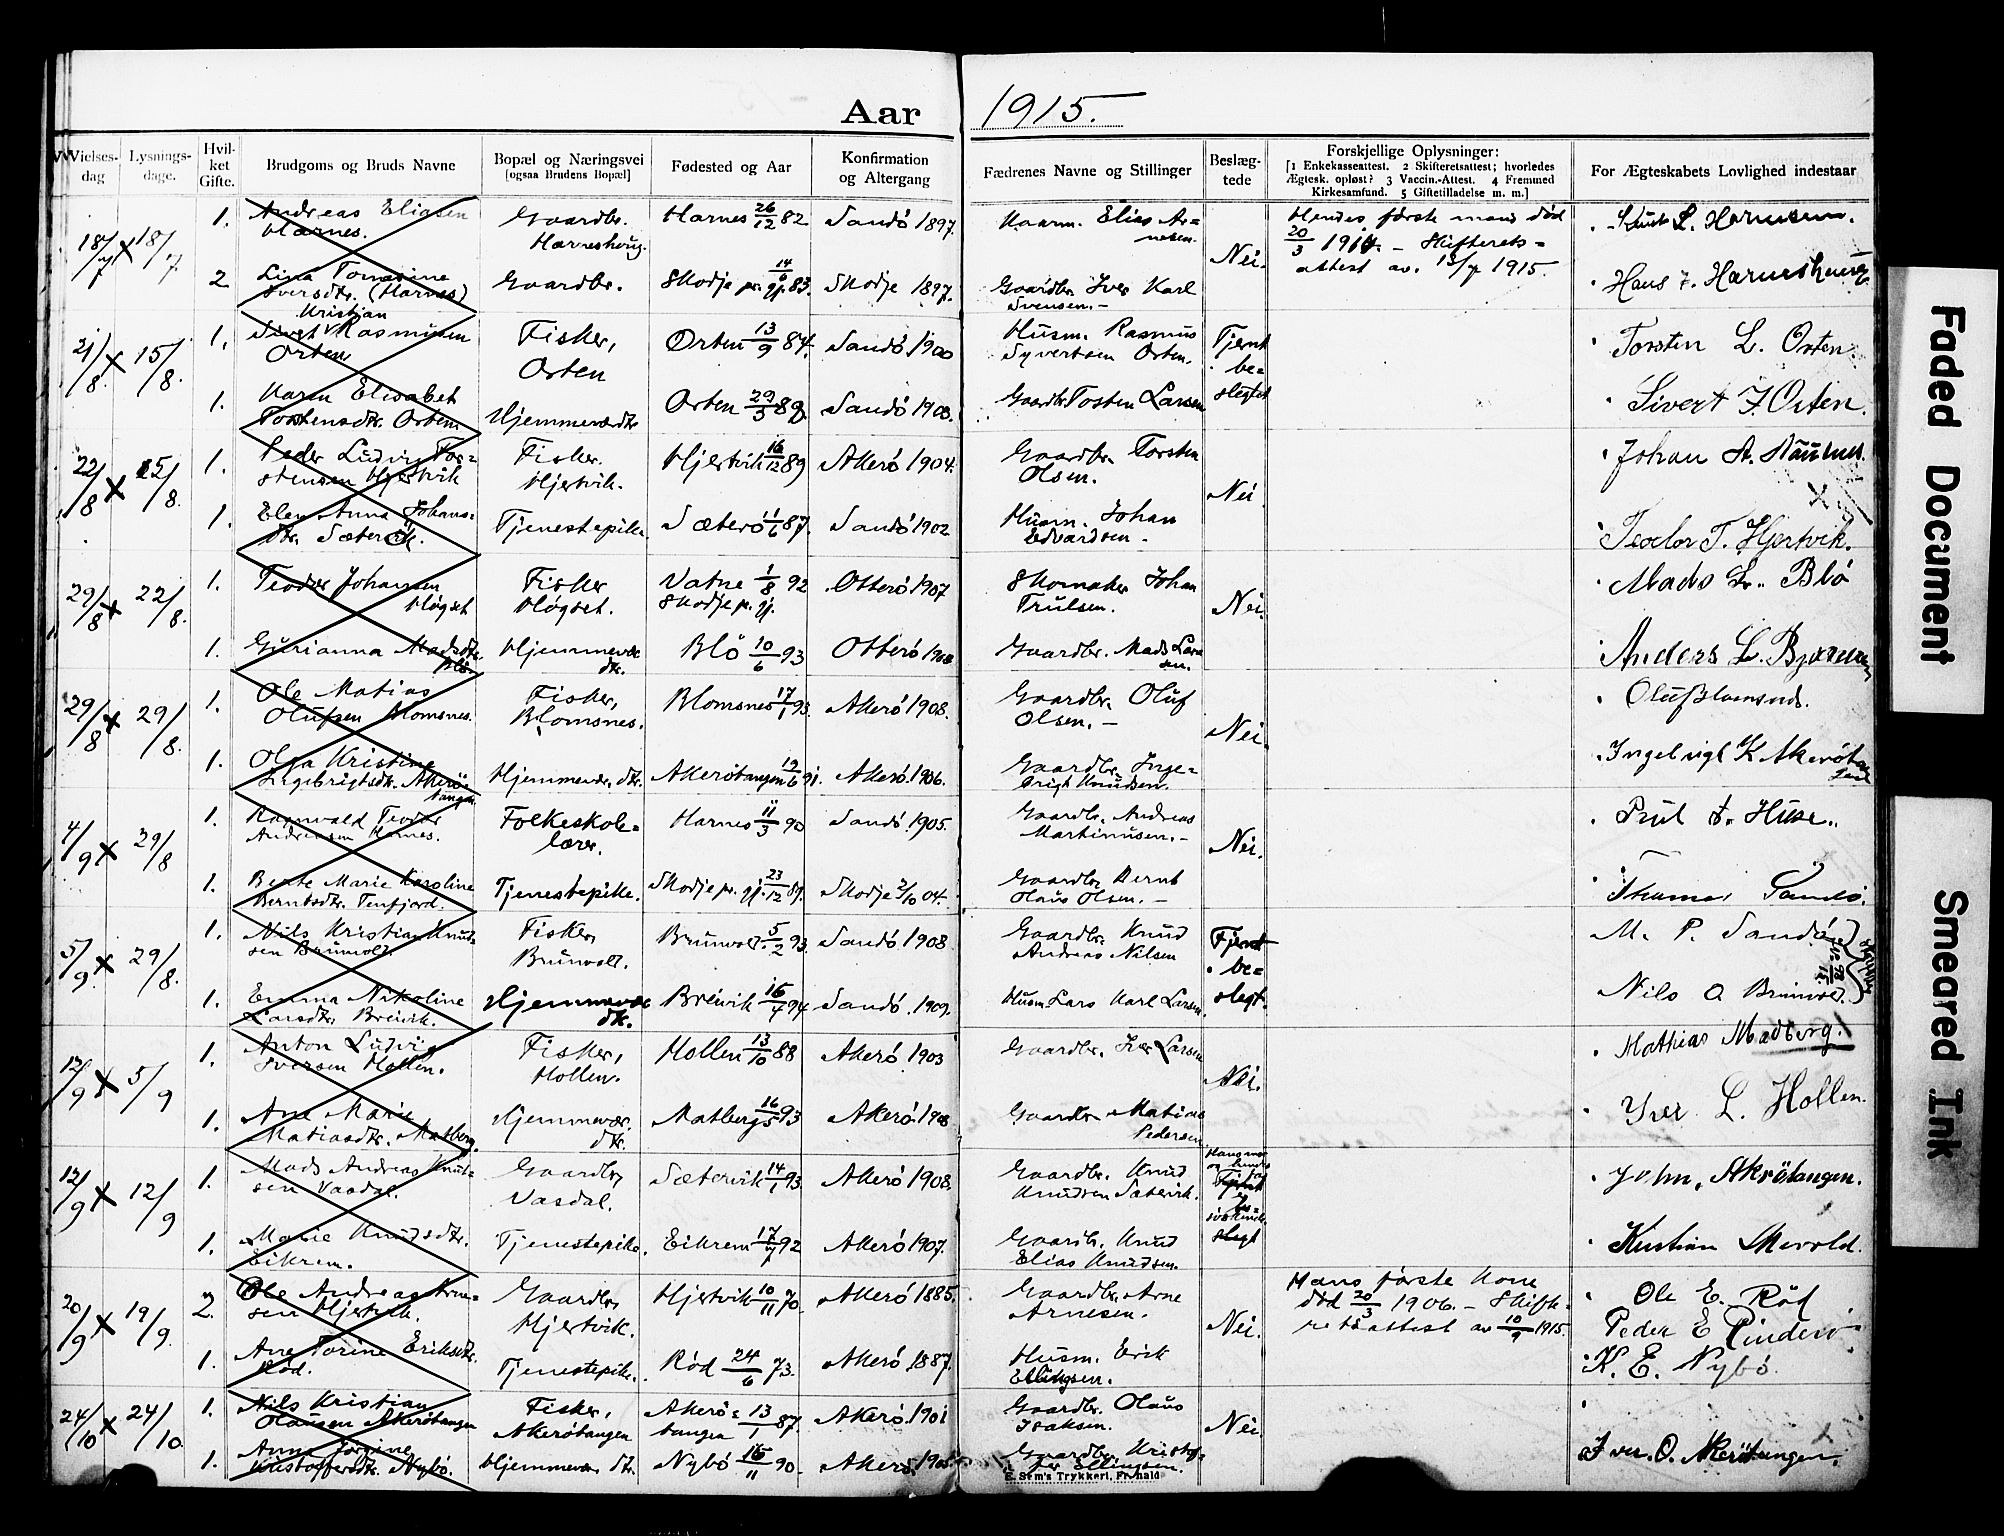 Aar 1915.
Vielses-dag
Lysnings-dage.
Hvil-ket Gifte.
Brudgoms og Bruds Navne
Bopæl og Næringsvei
[ogsaa Brudens Bopæl]
Fødested og Aar
Konfirmation og Altergang
Fædrenes Navne og Stillinger
Beslæg-tede
Forskjellige Oplysninger:
[1 Enkekasseattest. 2 Skifteretsattest; hvorledes
Ægtesk. opløst? 3 Vaccin.-Attest. 4 Fremmed
Kirkesamfund. 5 Giftetilladelse m. m.]
For Ægteskabets Lovlighed indestaar
18/7 x 18/7
1. Andreas Eliasen Gaardbr. Harnes 26/12 82 Sandö 1897. Kaarm. Elias Ar= Hendes förste mand död
Harnes. Harneshoug. nesen. Nei. 20/3 1914. – Skifterets=
attest av. 13/7 1915.
2 Lina Tomasine Gaardbr. Skodje pr. gj. 14/6 83. Skodje 1897. Gaardbr. Iver Karl Hans J. Harneshaug
Iversdtr. (Harnes) Svensen. –
21/8. x 15/8.
1. Kristian
Sivert Rasmussen Fisker, Orten 13/9 84. Sandö 1900 Husm. Rasmus Fjernt Torsten L. Orten.
Orten Orten Syvertsen Orten. be=
1. Karen Elisabet Orten 29/3 89 Sandö 1903. Gaardbr. Tosten Larsen slegtet Sivert J Orten.
Tostensdtr. Orten. Hjemmevær. dtr.
22/8 x 15/8.
1. Peder Ludvig Tor= Fisker. Hjertvik 16/12 89 Akerö 1904. Gaardbr. Torsten Johan A.
stensen Hjertvik Hjertvik. Olsen. Nei
1. Elen Anna Johans= Tjenestepike. Sæterö 11/6 87. Sandö 1902 Husm. Johan
dtr. Sæterö. Edvardsen. Teodor T. Hjertvik.
29/8 x 22/8.
1. Teodor Johansen Fisker Vatne 1/8 92 Otterö 1907 Skomaker Johan Mads L. Blö
Högset Högset. Skodje pr. gj. Trulsen. Nei.
1. Gurianna Madsdtr. Hjemmevær. Blö 10/6 93 Otterö 1908 Gaardbr. Mads Lar Anders L.
Blö. dtr. sen.
29/8 x 29/8.
1. Ole Matias Fisker, Blomsnes 17/1 93. Akerö 1908. Gaardbr. Oluf
Olufsen Blomsnes. Blomsnes. Olsen. – Nei.
1. Olga Kristine Hjemmevær. dtr. Akerötangen 19/6 91. Akerö 1906. Gaardbr. Inge= Ingebrigt K Akerötangen
Ingebrigtsdtr. Akerö= brigt Knudsen.
tangen.
4/9 x 29/8
1. Ragnvald Teodor Folkeskole= Harnes 11/3 90 Sandö 1905. Gaardbr. Andreas
Andreassen Harnes. lærer. Martinusen. – Nei.
1. Beate Marie Karoline Tjenestepike. Skodje pr. gj. 23/12 89. Skodje 2/10 04. Gaardbr. Bernt Thomas Sandö.
Berntsdtr. Tenfjord. Olaus Olsen. –
5/9 x 29/8.
1. Nils Kristian Knud= Fisker, Brunvoll. 5/2 93. Sandö 1908. Gaardbr. Knud Fjernt M. P. Sandö
sen Brunvoll. Brunvoll. Andreas Nilsen be=
1. Emma Nikoline Hjemmevær. Breivik 16/4 94 Sandö 1909. Husm. Lars Karl Larsen. slegt. Nils O Brunvol.
Larsdtr. Breivik. dtr.
12/9 x 5/9
1. Anton Ludvig Fisker, Hollen 13/10 88 Akerö 1903 Gaardbr. Iver Larsen Mathias Madberg.
Iversen Hollen. Hollen. Nei.
1. Ane Marie Hjemmevær. Matberg 16/5 93 Akerö 1908 Gaardbr. Matias Yver L. Hollen.
Matiasdtr. Matberg. dtr. Pedersen.
12/9 x 12/9
1. Mads Andreas Knud= Gaardbr. Sætervik 14/1 93 Akerö 1908. Gaardbr. Knud John. Akrötangen.
sen Vasdal. Vasdal. Knudsen Sætervik. Fjernt
1. Marie Knudsdtr. Tjenestepike. Eikrem 17/7 92 Akerö 1907. Gaardbr. Knud slegt Kristian
Eikrem. Elias Knudsen.
20/9 x 19/9.
2. Ole Andreas Arne= Gaardbr. Hjertvik 10/11 70. Akerö 1885. Gaardbr. Arne Hans förste kone Ole E. Röd
sen Hjertvik. Hjertvik. Arnesen. Nei. död 20/3 1906. – Skifte= Peder E
retsattest av 10/9 1915.
1. Ane Torine Eriksdtr. Tjenestepike. Röd 24/6 73. Akerö 1887. Husm. Erik K. E. Nybö
Röd. Ellingsen.
24/10 x 24/10.
1. Nils Kristian Fisker, Akerö= 13/1 87. Akerö 1901 Gaardbr. Olaus
Olausen Akerötangen Akerötangen tangen Isaksen. Nei.
1. Anna Jörgine Hjemmevær. dtr. Nybö 16/11 90. Akerö 1905 Gaardbr. Kristof= Iver. O. Akerötangen.
Kristoffersdtr. Nybö. fer Ellingsen.
E. Sem's Trykkeri, Fr.hald
Faded Document
Smeared Ink